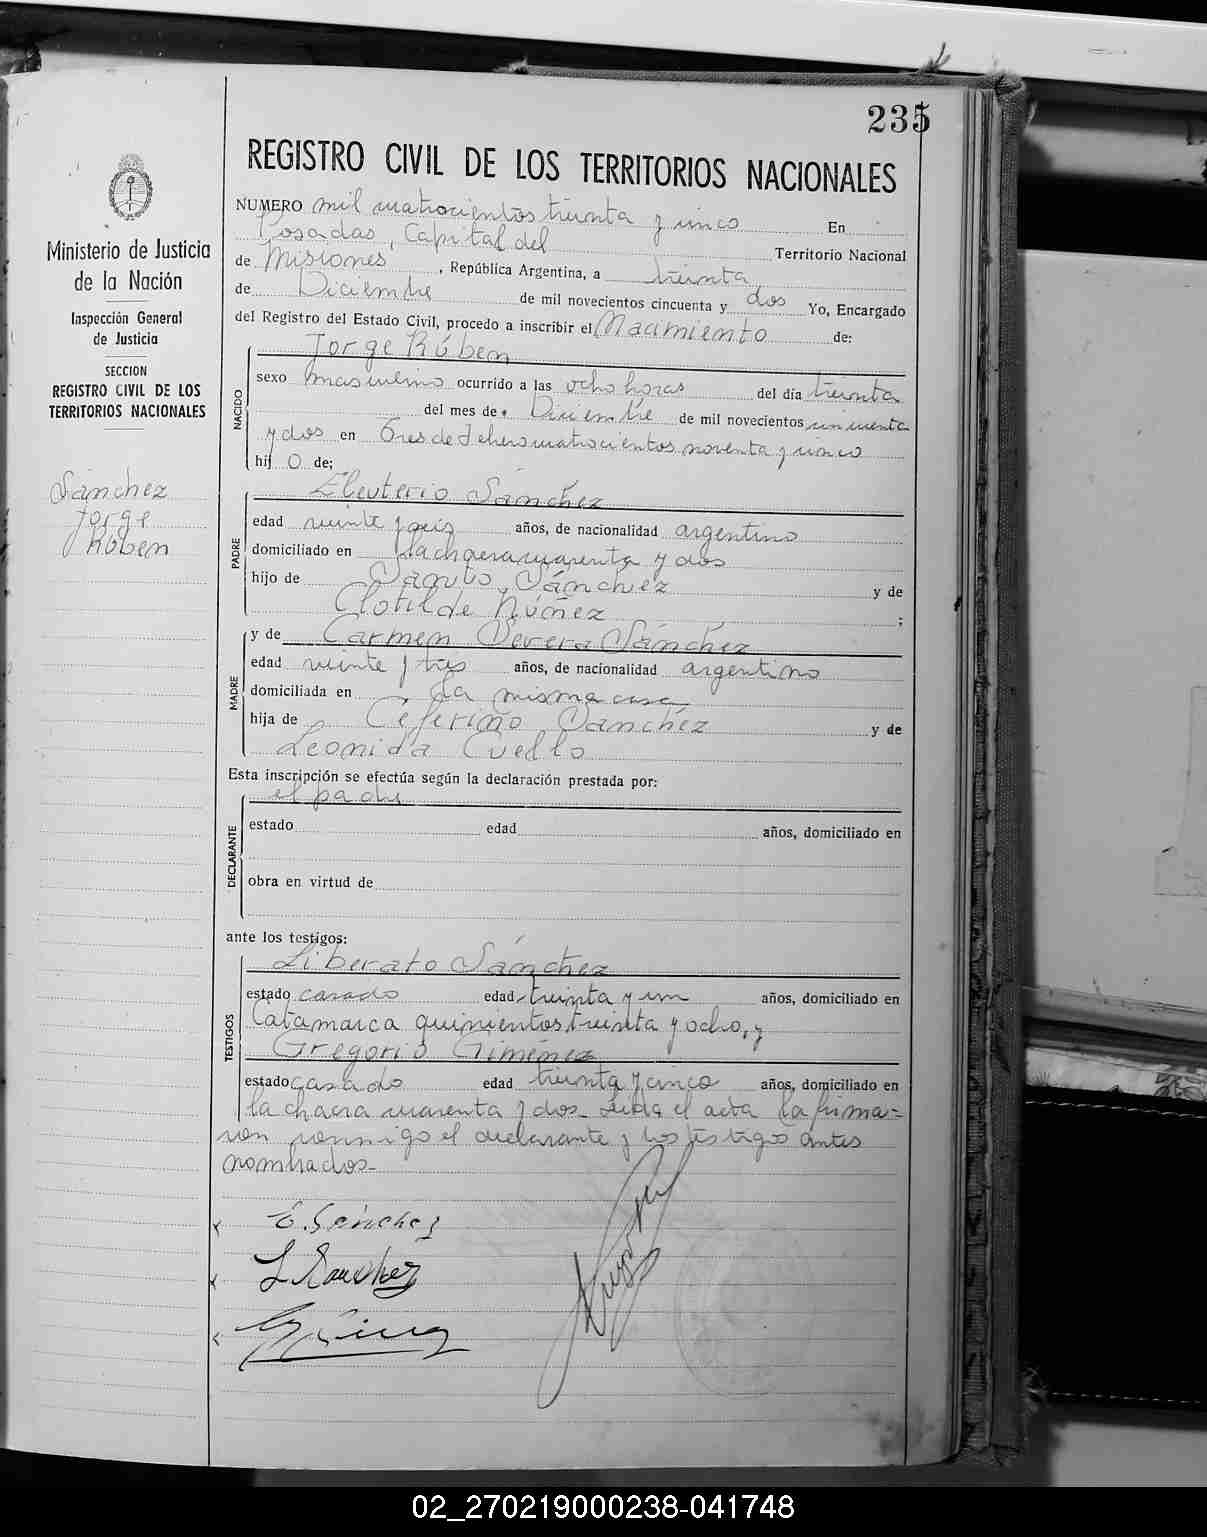 235
REGISTRO CIVIL DE LOS TERRITORIOS NACIONALES
Ministerio de Justicia
de la Nación
Inspección General
de Justicia
SECCION
REGISTRO CIVIL DE LOS
TERRITORIOS NACIONALES
Sánchez
Jorge
Rúben
NUMERO mil cuatrocientos treinta y cinco En
Posadas, Capital del Territorio Nacional
de Misiones, República Argentina, a treinta
de Diciembre de mil novecientos cincuenta y dos Yo, Encargado
del Registro del Estado Civil, procedo a inscribir el Nacimiento de:
Jorge Rúben
NACIDO
sexo masculino ocurrido a las ocho horas del día treinta
del mes de Diciembre de mil novecientos cincuenta
y dos en Tres de Febrero cuatrocientos noventa y cinco
hijo de:
Eleuterio Sánchez
PADRE
edad veinte y seis años, de nacionalidad argentino
domiciliado en la chacra cuarenta y dos
hijo de Santos Sánchez y de
Clotilde Núñez ;
y de Carmen Severa Sánchez
MADRE
edad veinte y tres años, de nacionalidad argentino
domiciliada en la misma casa
hija de Ceferino Sánchez y de
Leonida Cuello
Esta inscripción se efectúa según la declaración prestada por:
el padre
DECLARANTE
estado edad años, domiciliado en
obra en virtud de
ante los testigos:
Liberato Sánchez
TESTIGOS
estado casado edad treinta y un años, domiciliado en
Catamarca quinientos treinta y ocho, y
Gregorio Giménez
estado casado edad treinta y cinco años, domiciliado en
la chacra cuarenta y dos - Leída el acta la firma=
ron conmigo el declarante y los testigos antes
nombrados-
E. Sánchez
L Sanchez
02_270219000238-041748